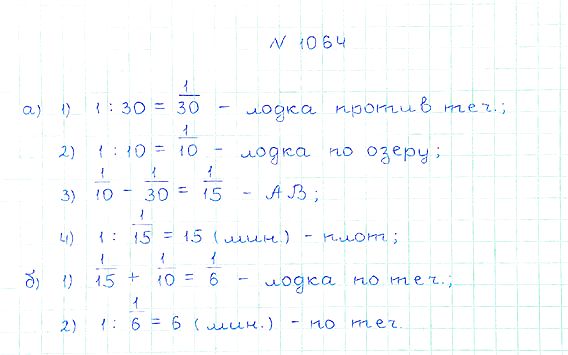 N 1064
а) 1) 1 : 30 = 1/30 - лодка против теч.;
2) 1 : 10 = 1/10 - лодка по озеру;
3) 1/10 - 1/30 = 1/15 - АВ;
4) 1 : 1/15 = 15 (мин.) - плот;
б) 1) 1/15 + 1/10 = 1/6 - лодка по теч.;
2) 1 : 1/6 = 6 (мин.) - по теч.